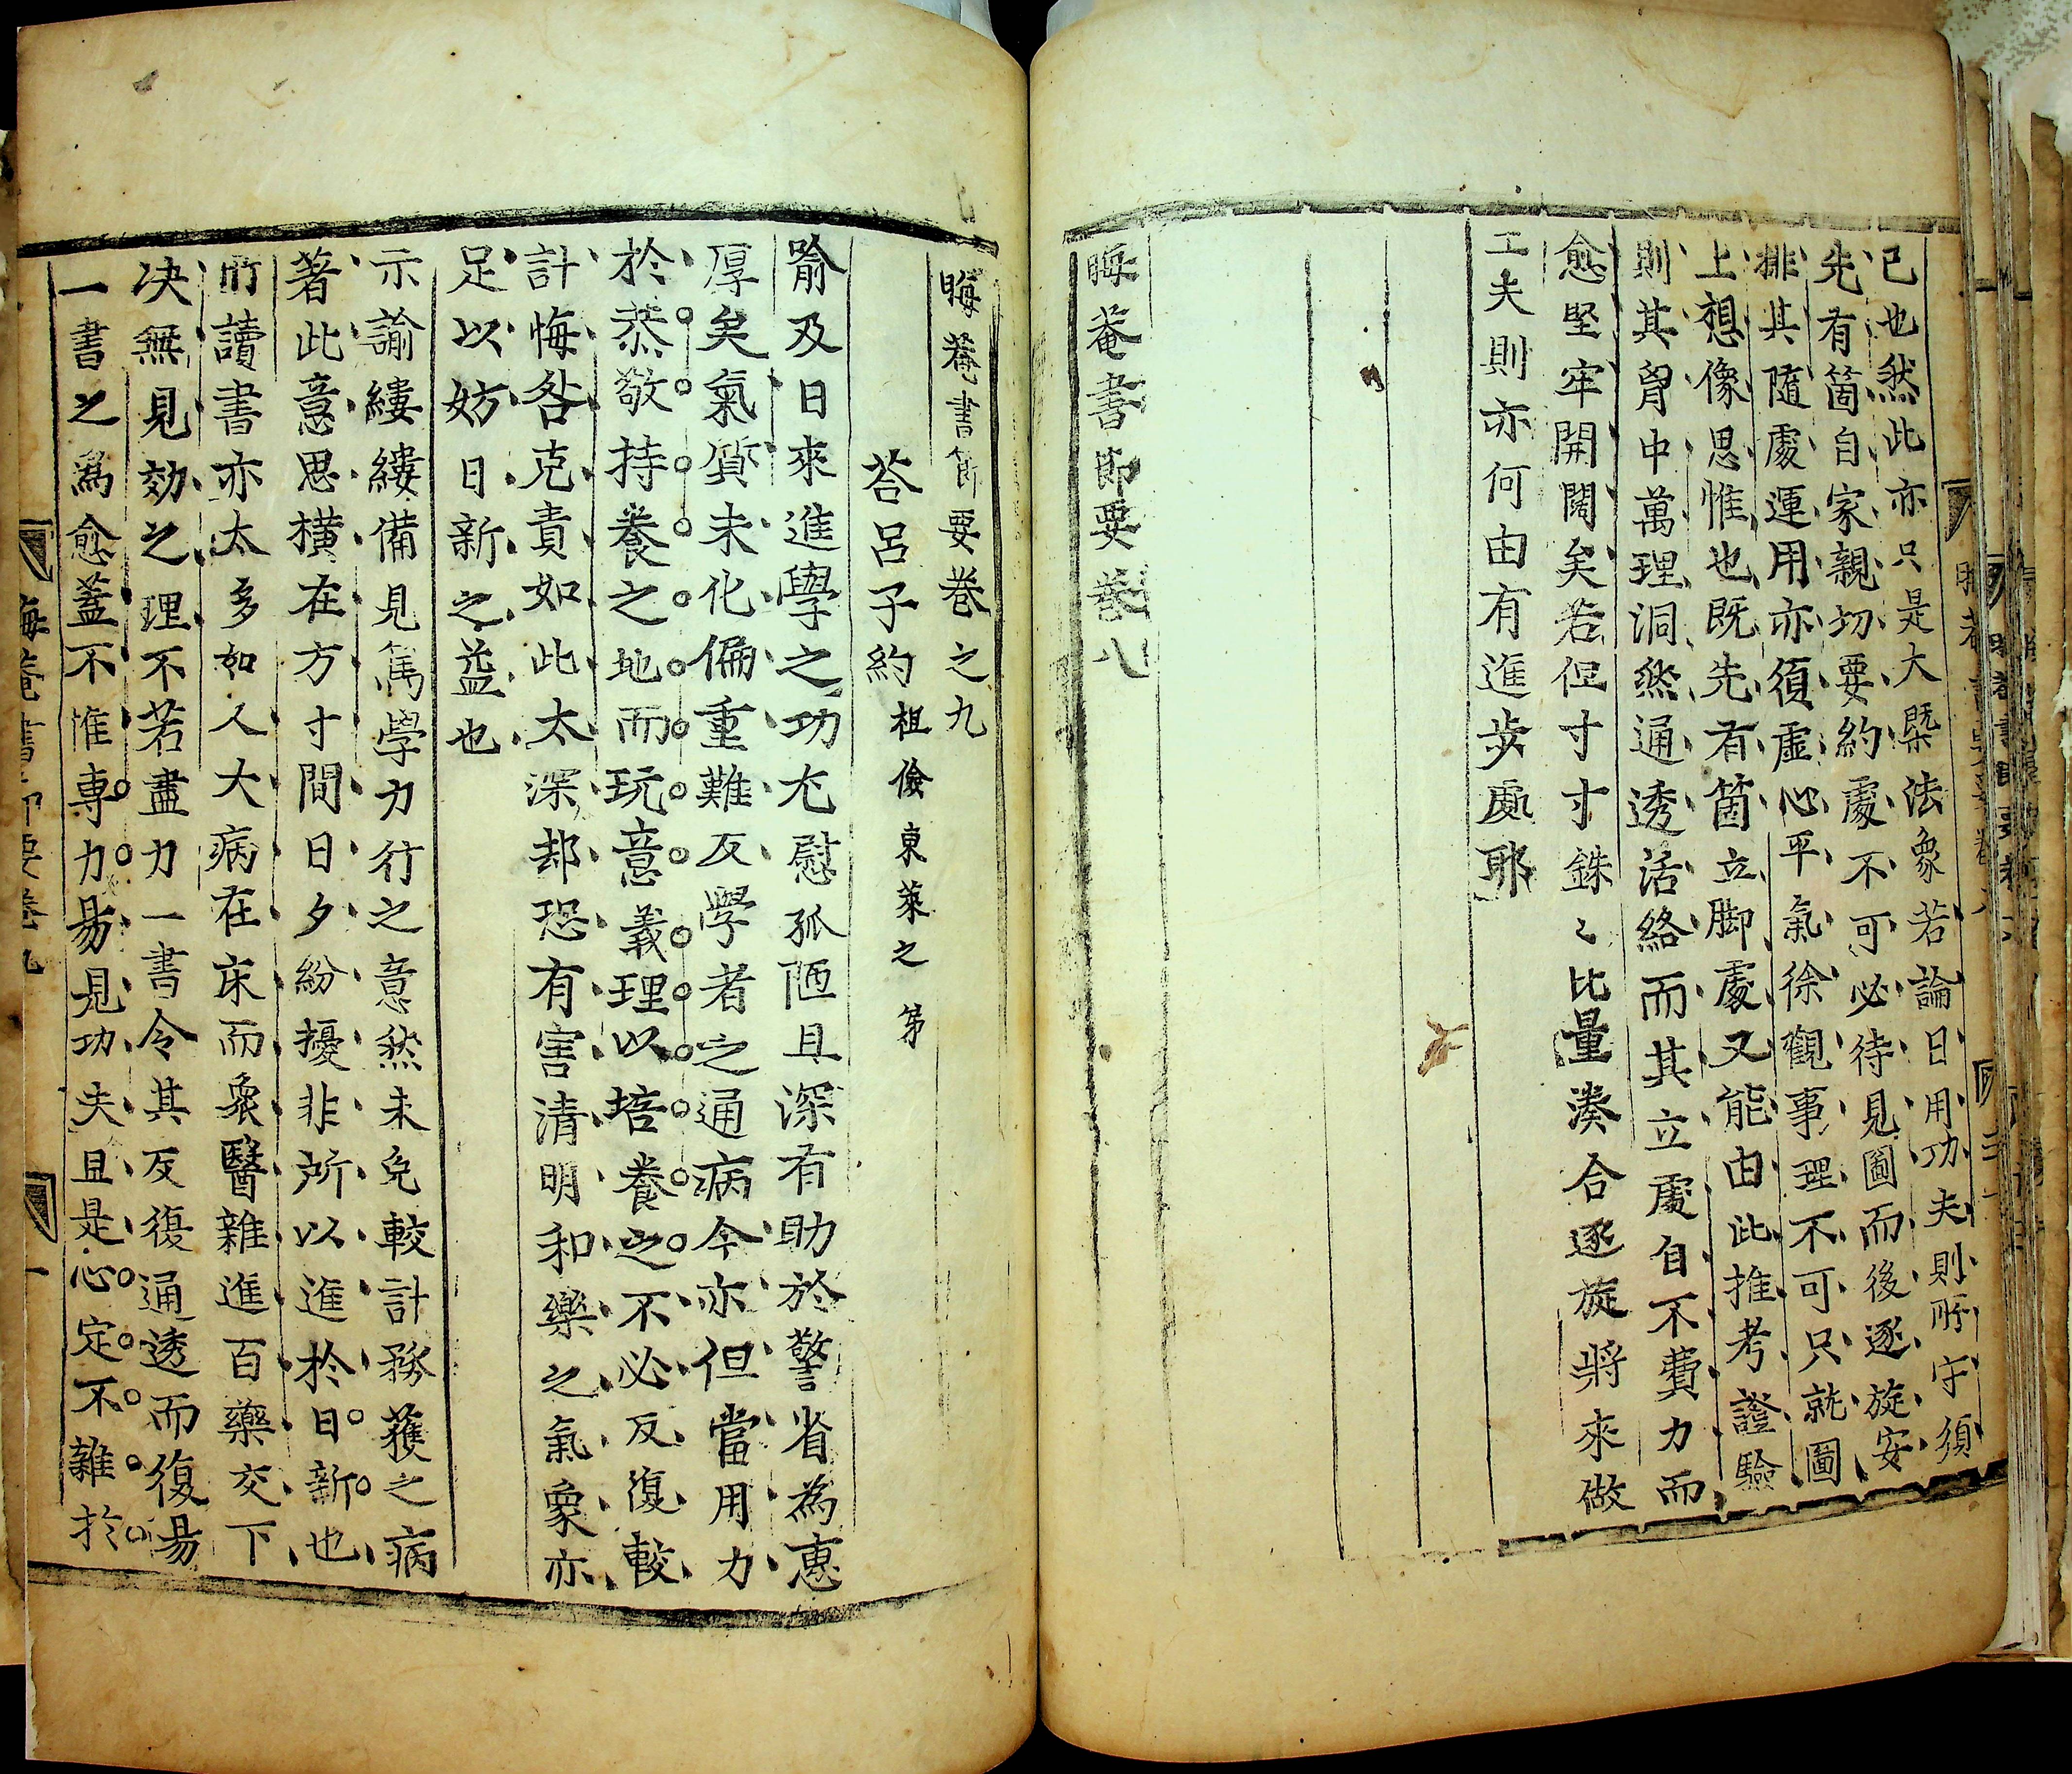 已也然此亦只是大槩法象若論日用功夫則所守須
先有箇自家親切要約處不可必待見圖而後逐旋安
排其隨處運用亦須虛心平氣徐觀事理不可只就圖
上想像思惟也既先有箇立脚處又能由此推考證驗
則其胷中萬理洞然通透活絡而其立處自不費力而
愈堅牢開闊矣若但寸寸銖〻比量湊合逐旋將來做
工夫則亦何由有進步處耶
晦菴書節要卷八
晦菴書節要卷之九
荅呂子約 祖儉東萊之弟
喻及日來進學之功尤慰孤陋且深有助於警省為惠
厚矣氣質未化偏重難反學者之通病今亦但當用力
於恭敬持養之地而玩意義理以培養之不必反復較
計悔咎克責如此太深却恐有害清明和樂之氣象亦
足以妨日新之益也
示諭縷縷備見篤學力行之意然未免較計務獲之病
著此意思橫在方寸間日夕紛擾非所以進於日新也
所讀書亦太多如人大病在床而衆醫雜進百藥交下
决無見効之理不若盡力一書令其反復通透而復易
一書之爲愈蓋不惟專力易見功夫且是心定不雜於
晦菴書節要卷九 一